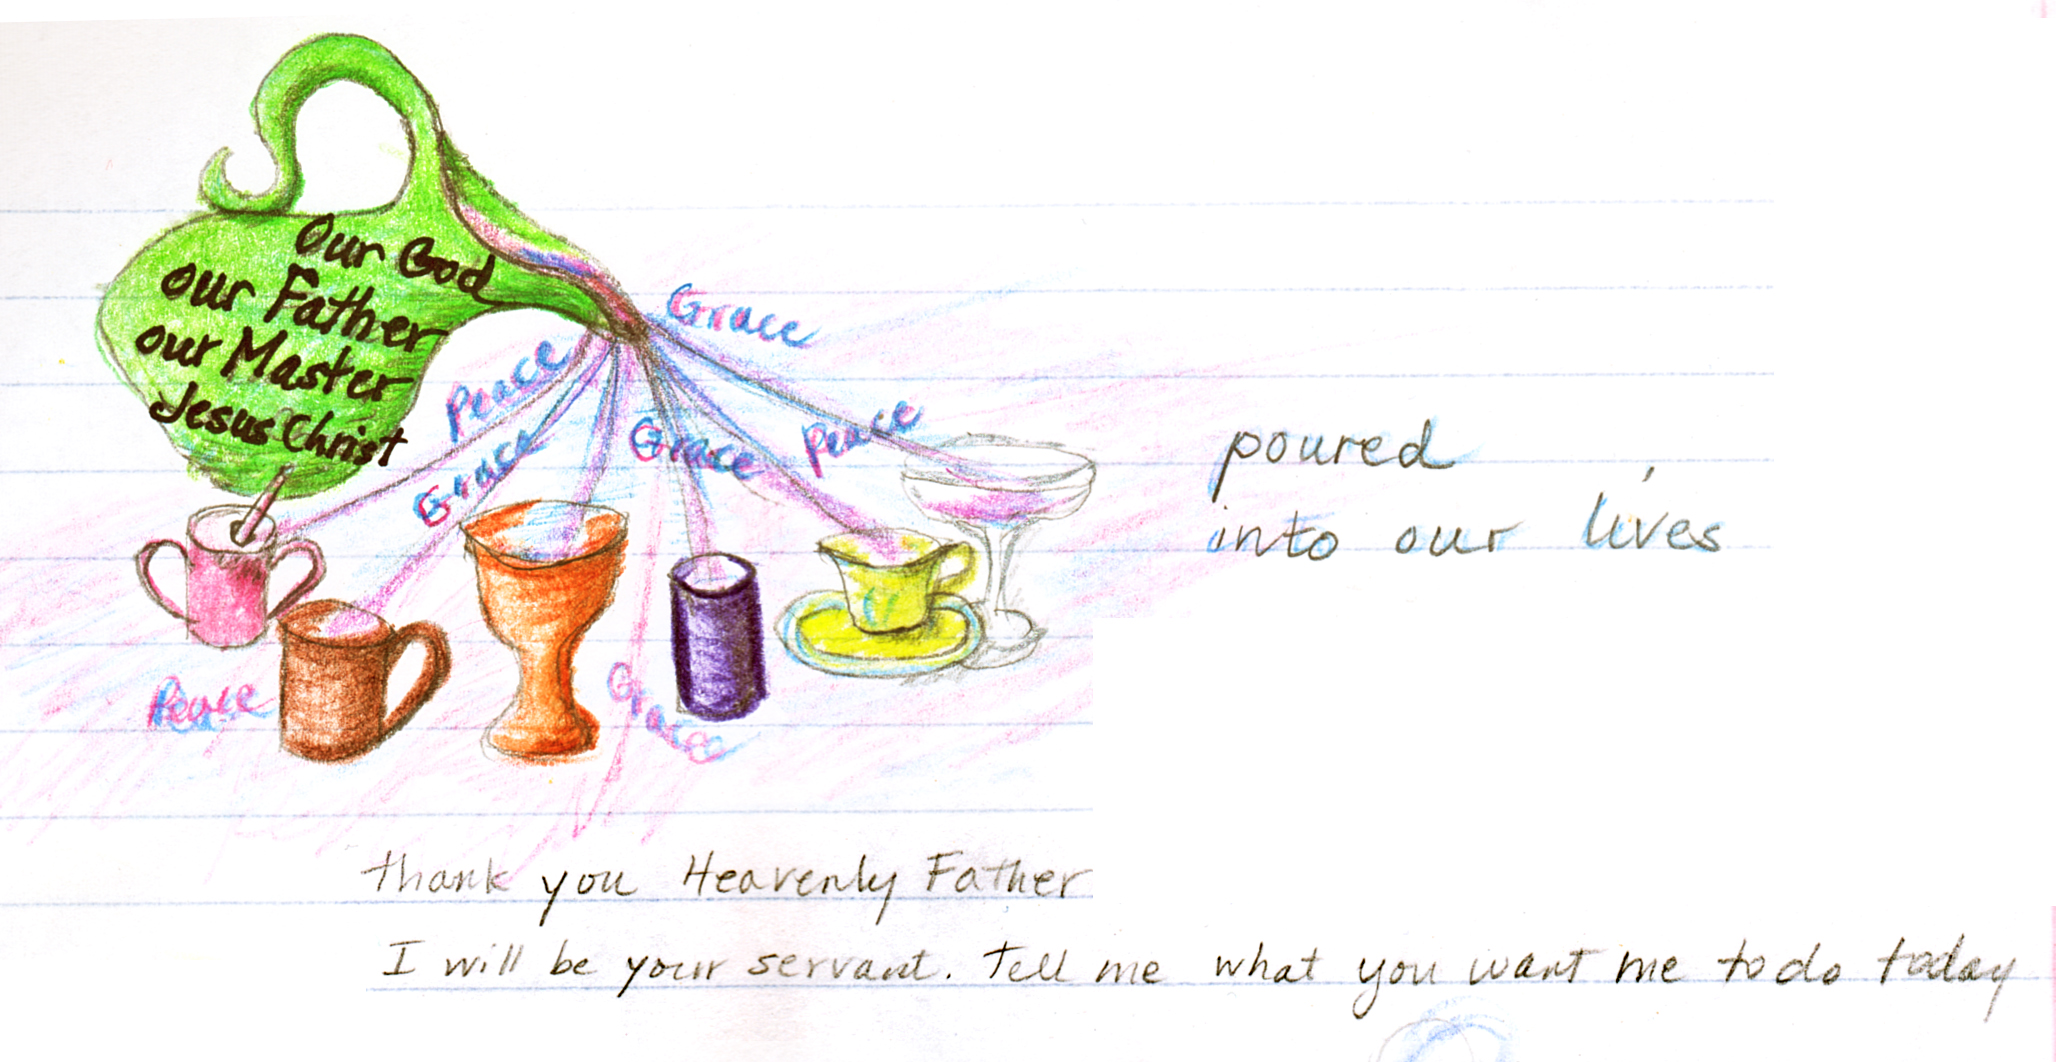 Our God
our Father
our Master
Jesus Christ
Grace
Peace
Grace
Grace
Peace
Peace
Graces
poured
into our lives
thank you Heavenly Father
I will be your servant. Tell me what you want me to do today